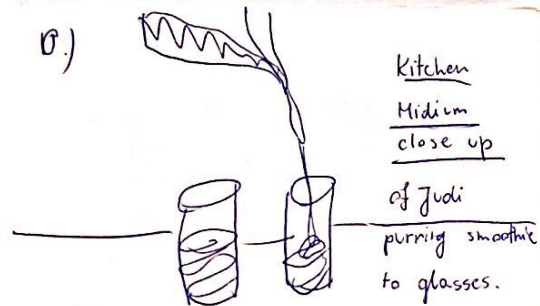 D.)
Kitchen
Midium
close up
of Judi
purring smoothie
to glasses.